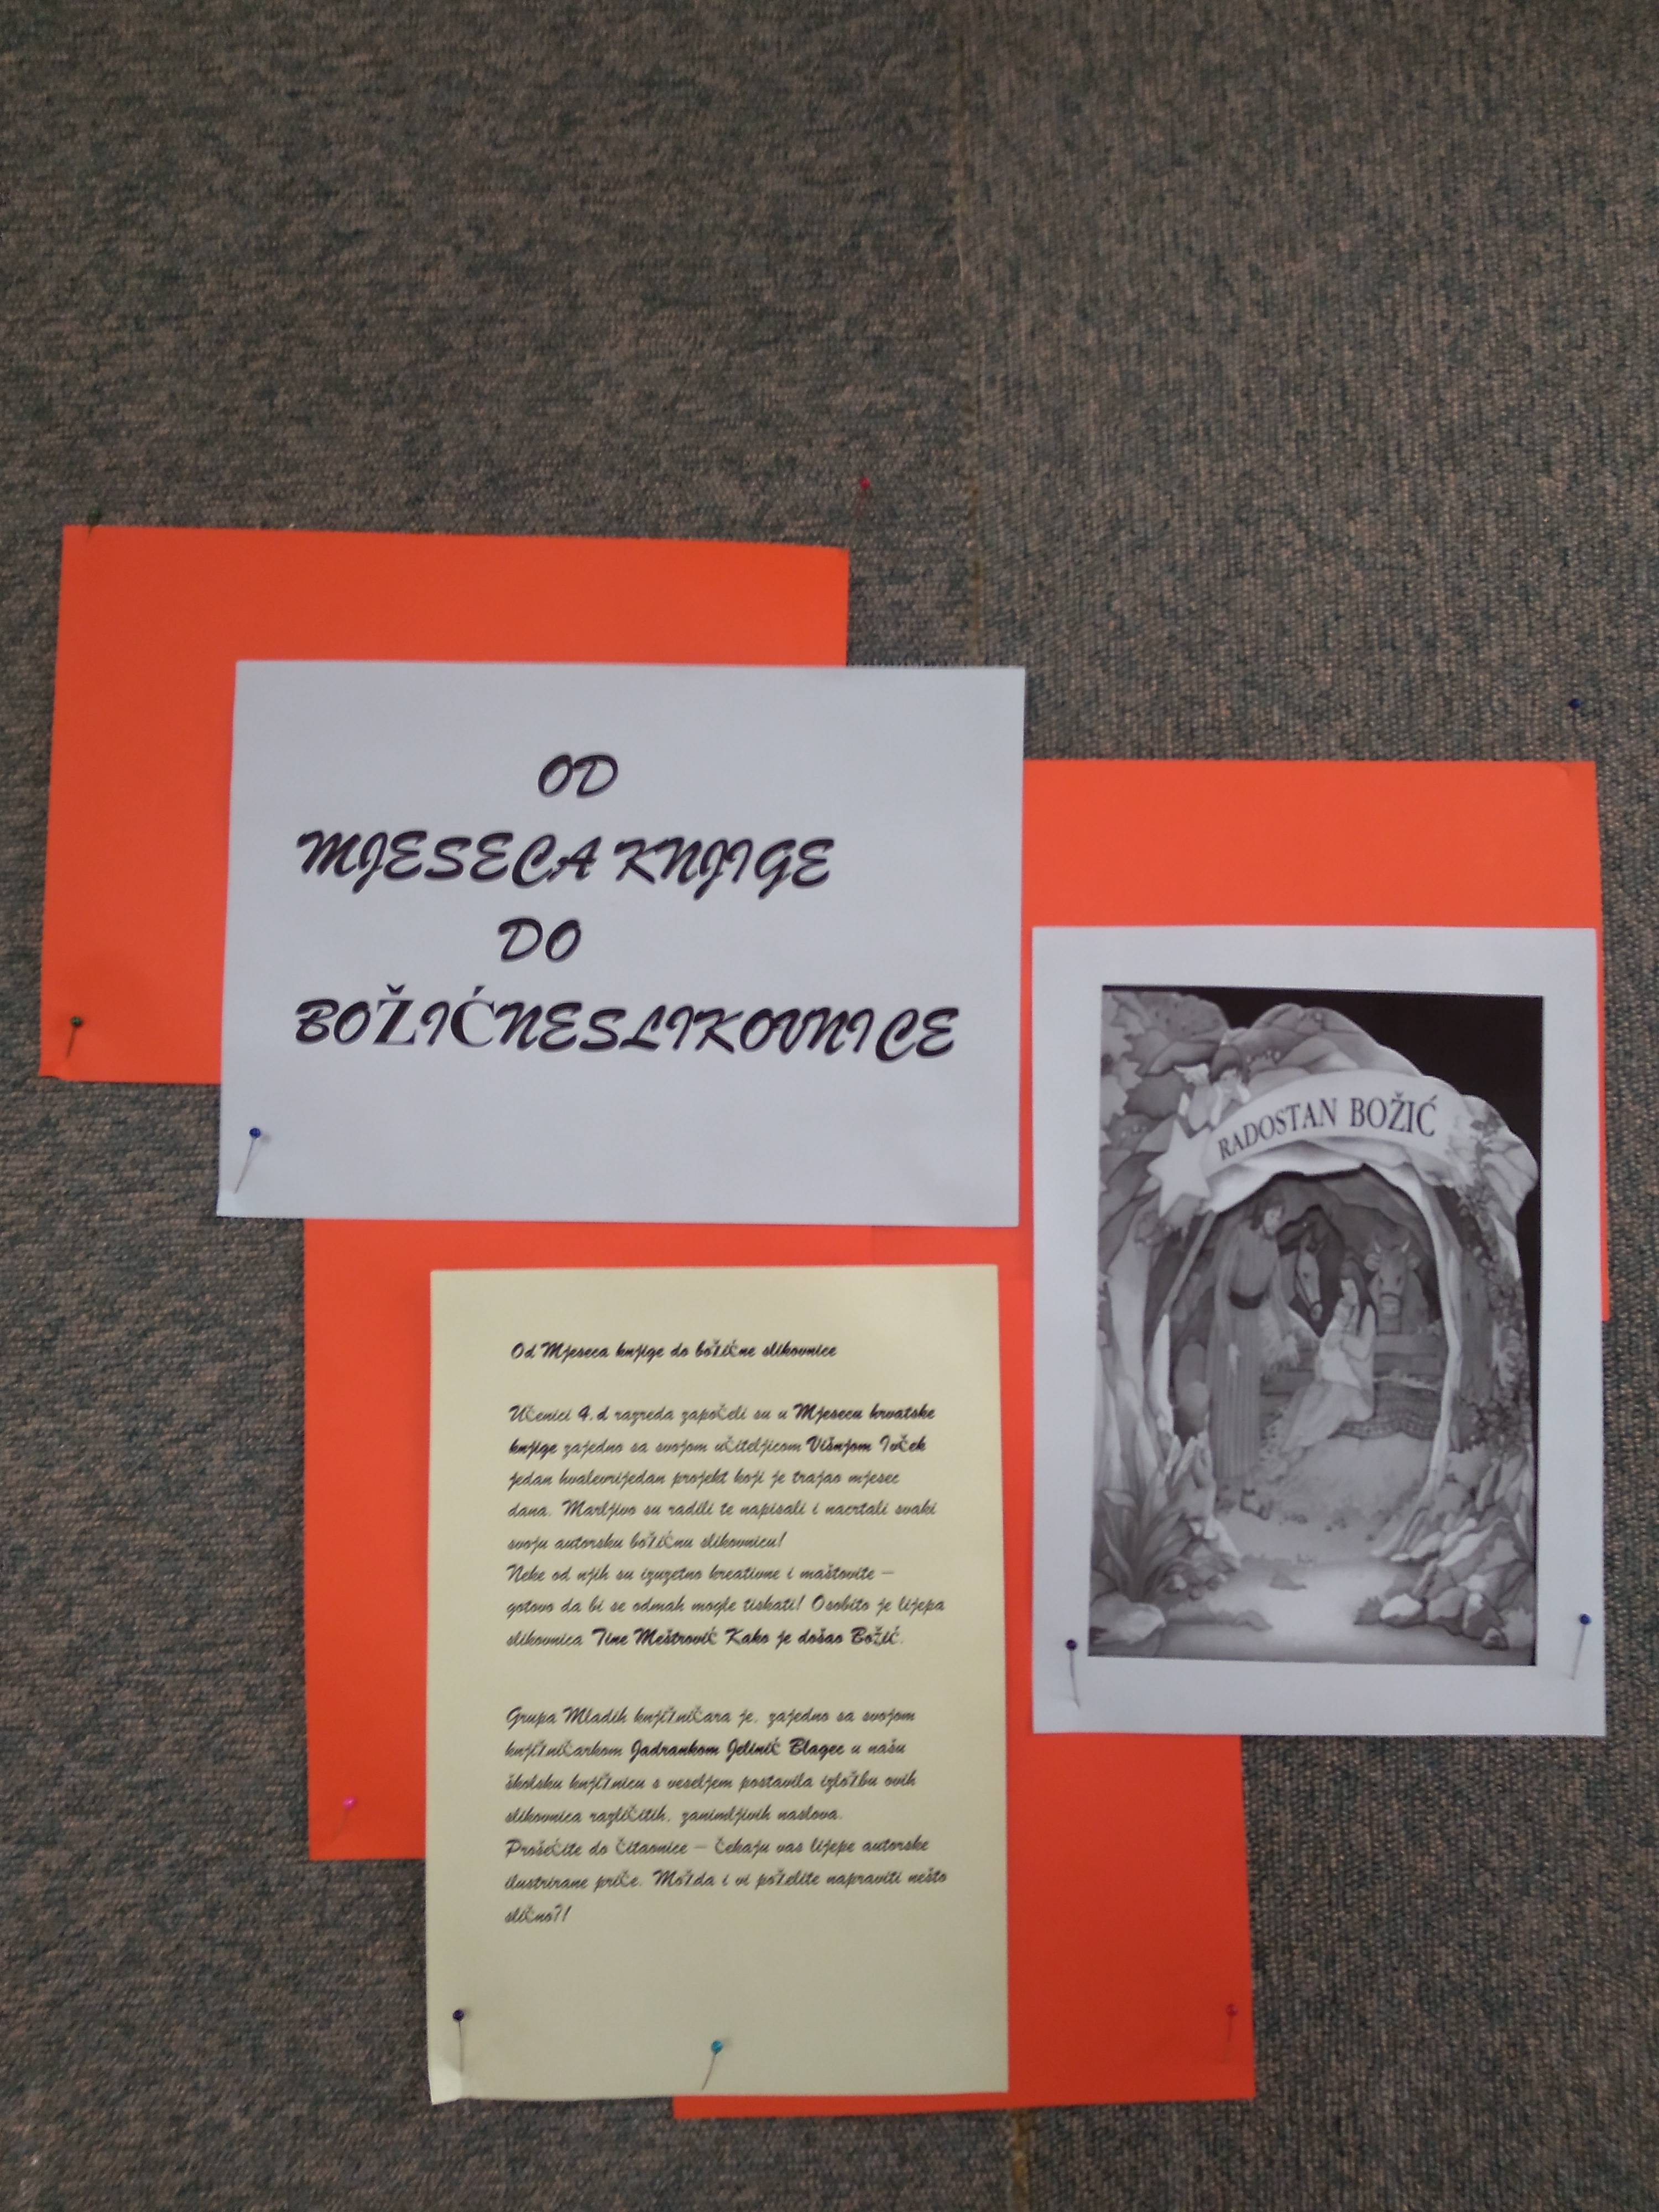 OD
MJESECA KNJIGE
DO
BOŽIĆNESLIKOVNICE
RADOSTAN BOŽIĆ
Od Mjeseca knjige do božićne slikovnice
Učenici 4.d razreda započeli su u Mjesecu hrvatske
knjige zajedno sa svojom učiteljicom Višnjom Ivček
jedan hvalevrijedan projekt koji je trajao mjesec
dana. Marljivo su radili te napisali i nacrtali svaki
svoju autorsku božićnu slikovnicu!
Neke od njih su izuzetno kreativne i maštovite –
gotovo da bi se odmah mogle tiskati! Osobito je lijepa
slikovnica Tine Meštrović Kako je došao Božić.
Grupa Mladih knjižničara je, zajedno sa svojom
knjižničarkom Jadrankom Jelinić Blagec u našu
školsku knjižnicu s veseljem postavila izložbu ovih
slikovnica različitih, zanimljivih naslova.
Prošećite do čitaonice – čekaju vas lijepe autorske
ilustrirane priče. Možda i vi poželite napraviti nešto
slično?!